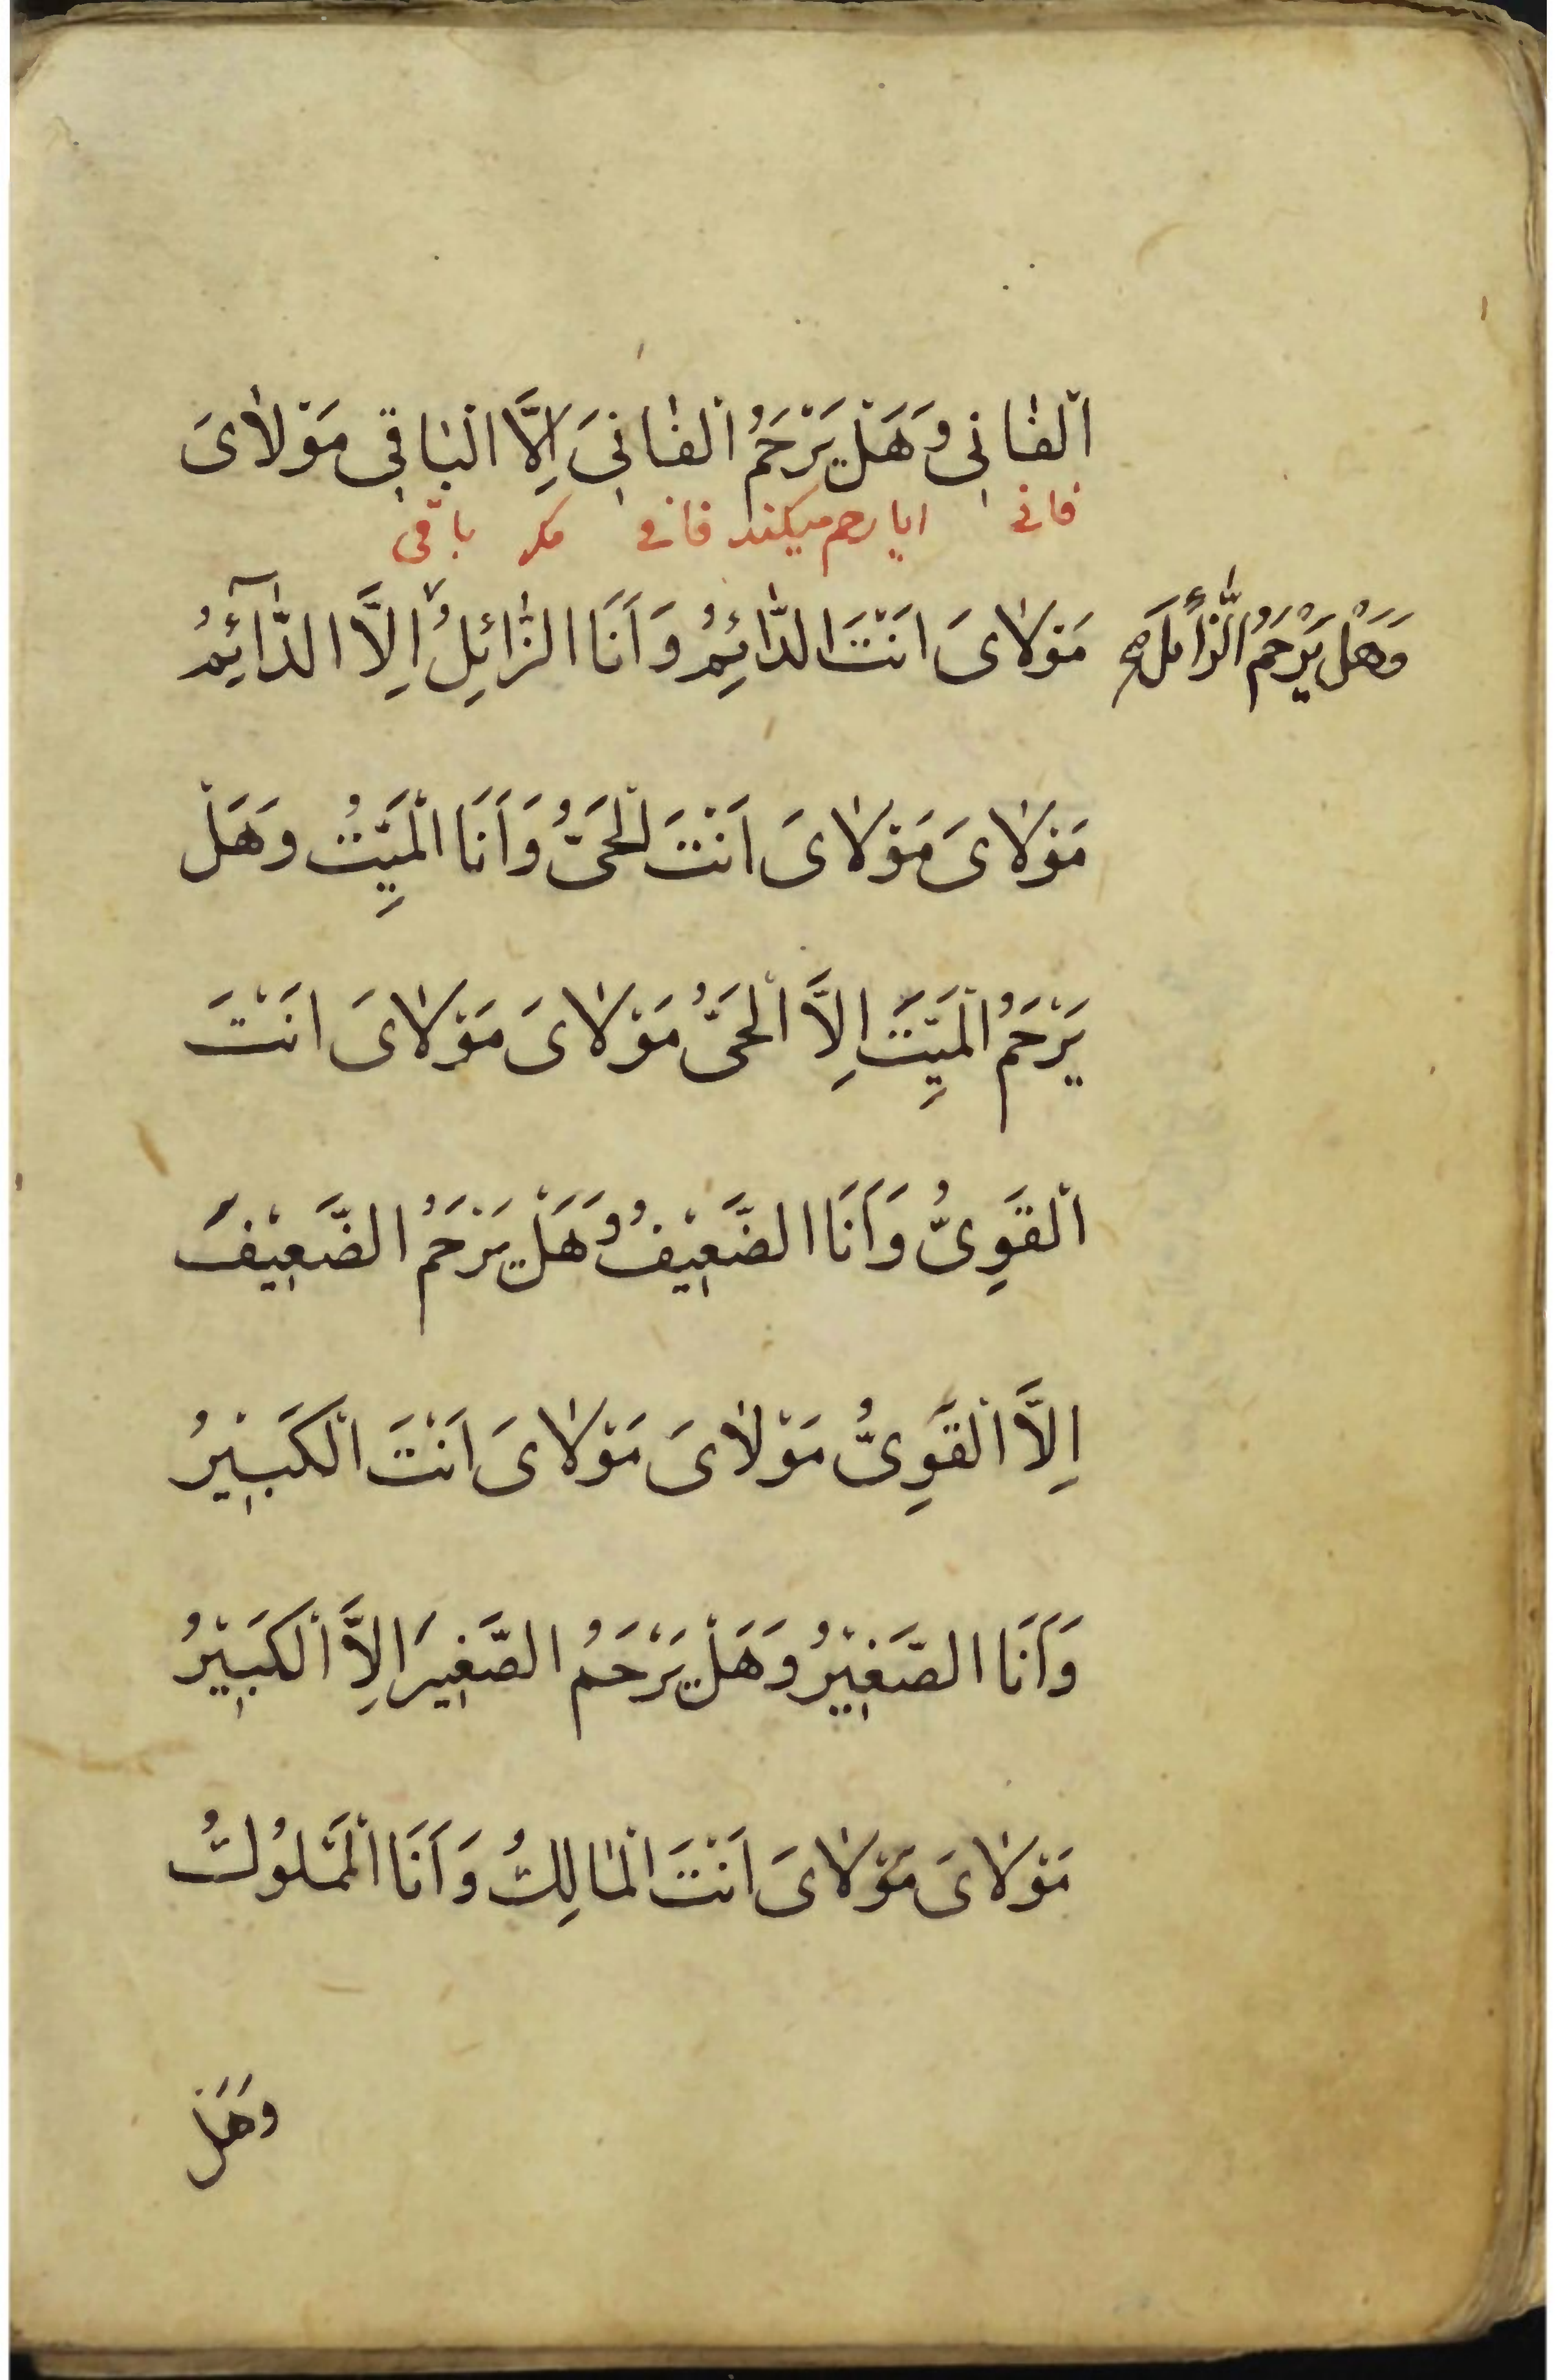 اَلْفٰانِی وَهَلْ یَرْحَمُ الْفٰانِیَ اِلَّا الْبٰاقِی مَوْلٰایَ
فانی ایا رحم میکند فانی مکر باقی
مَوْلٰایَ اَنْتَ الدّٰائِمُ وَاَنَا الزّٰائِلُ اِلَّا الدّٰآئِمُ
وَهَلْ یَرْحَمُ الزّٰائِلَ صح
مَوْلٰایَ مَوْلٰایَ اَنْتَ الْحَیُّ وَاَنَا الْمَیِّتُ وَهَلْ
یَرْحَمُ الْمَیِّتَ اِلَّا الْحَیُّ مَوْلٰایَ مَوْلٰایَ اَنْتَ
الْقَوِیُّ وَاَنَا الضَّعِیْفُ وَهَلْ یَرْحَمُ الضَّعِیْفَ
اِلَّا الْقَوِیُّ مَوْلٰایَ مَوْلٰایَ اَنْتَ الْکَبِیْرُ
وَاَنَا الصَّغِیْرُ وَهَلْ یَرْحَمُ الصَّغِیرَ اِلَّا الْکَبِیْرُ
مَوْلٰایَ مَوْلٰایَ اَنْتَ الْمٰالِكُ وَاَنَا الْمَمْلُوْكُ
وَهَلْ